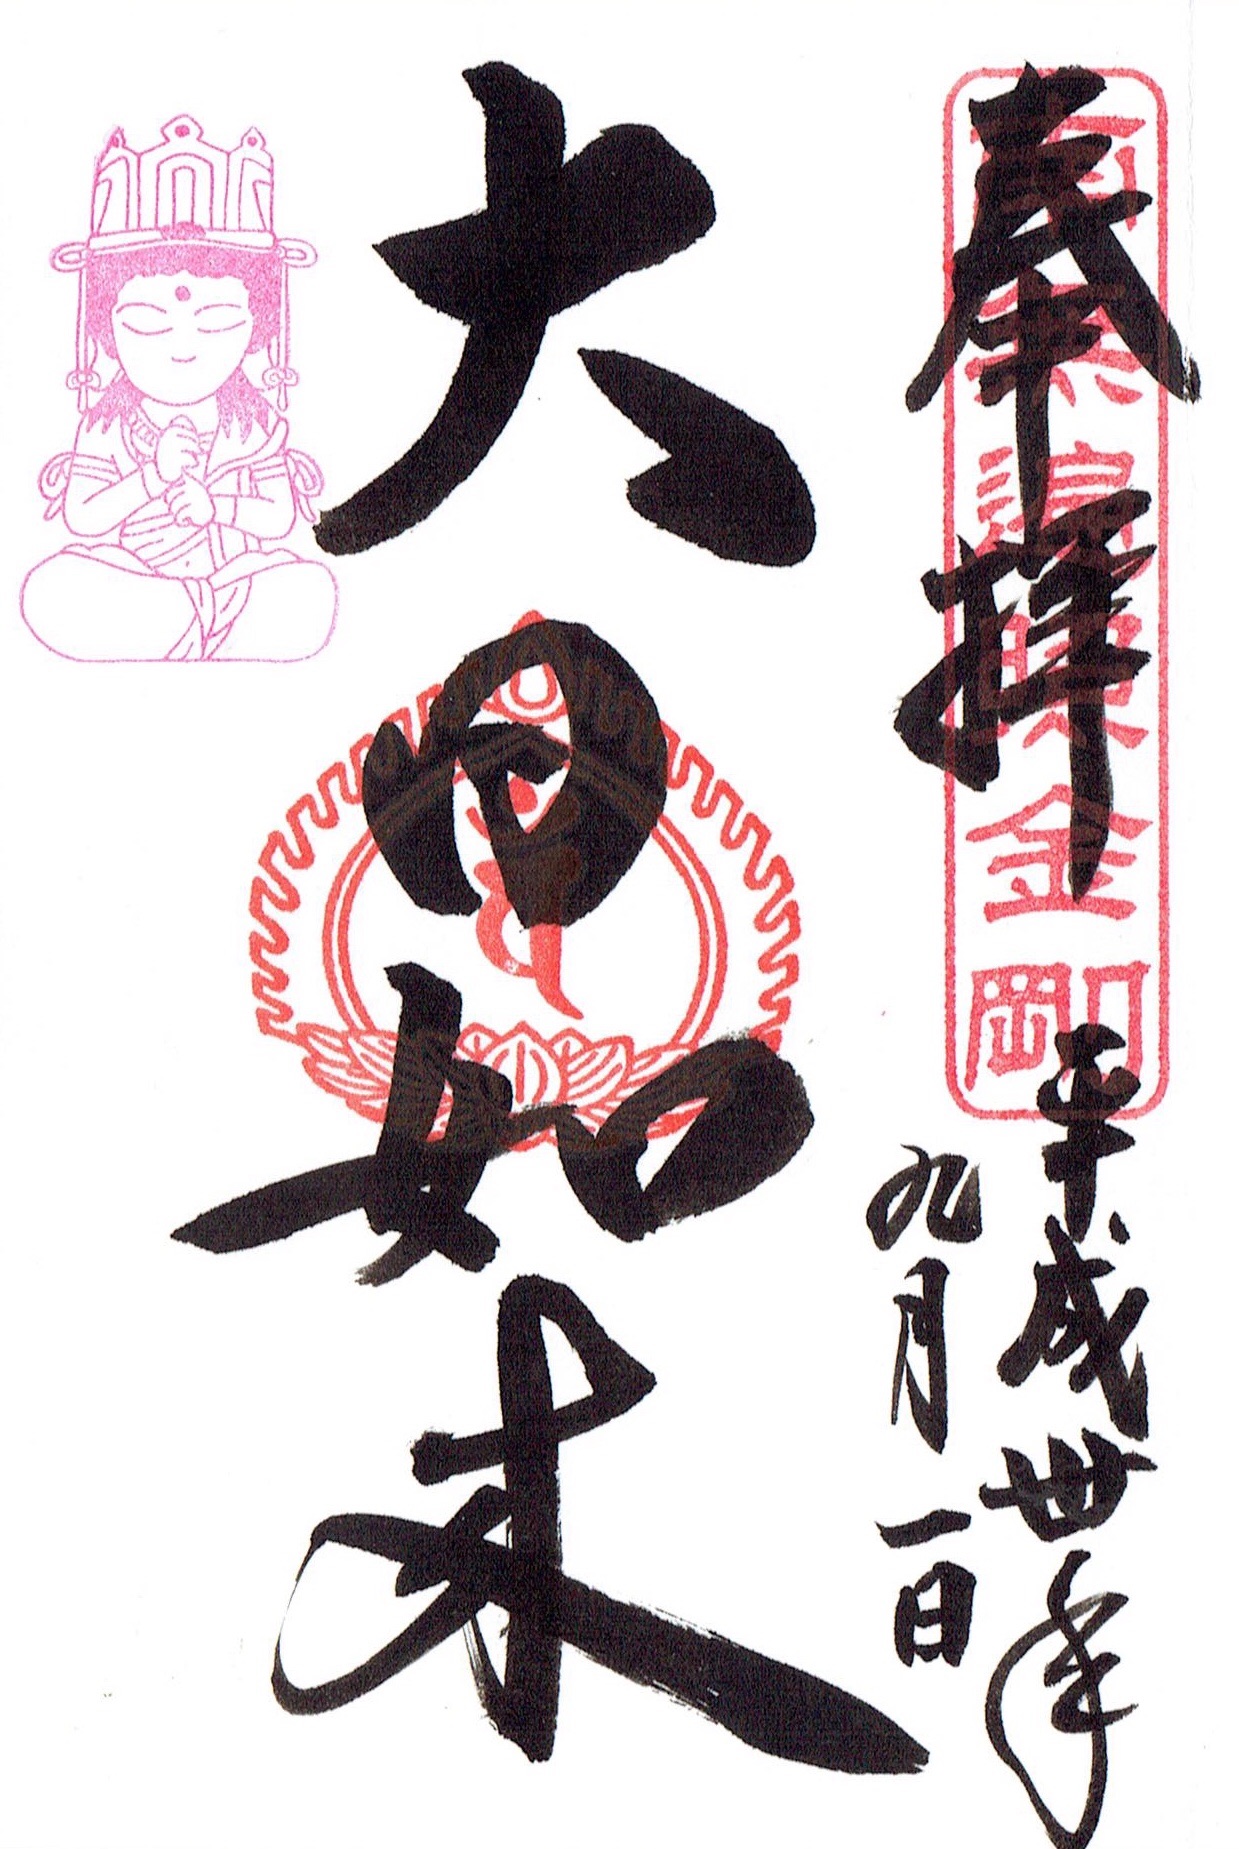 奉拝
南無遍照金剛
平成丗年
九月一日
大日如来